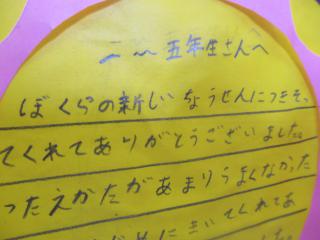 五年生さんへ
ぼくらの新しいちょうせんにつきそっ
てくれてありがとうございました。
ったえかたがあまりうまくなかった
にきいてくれてあ
ました。